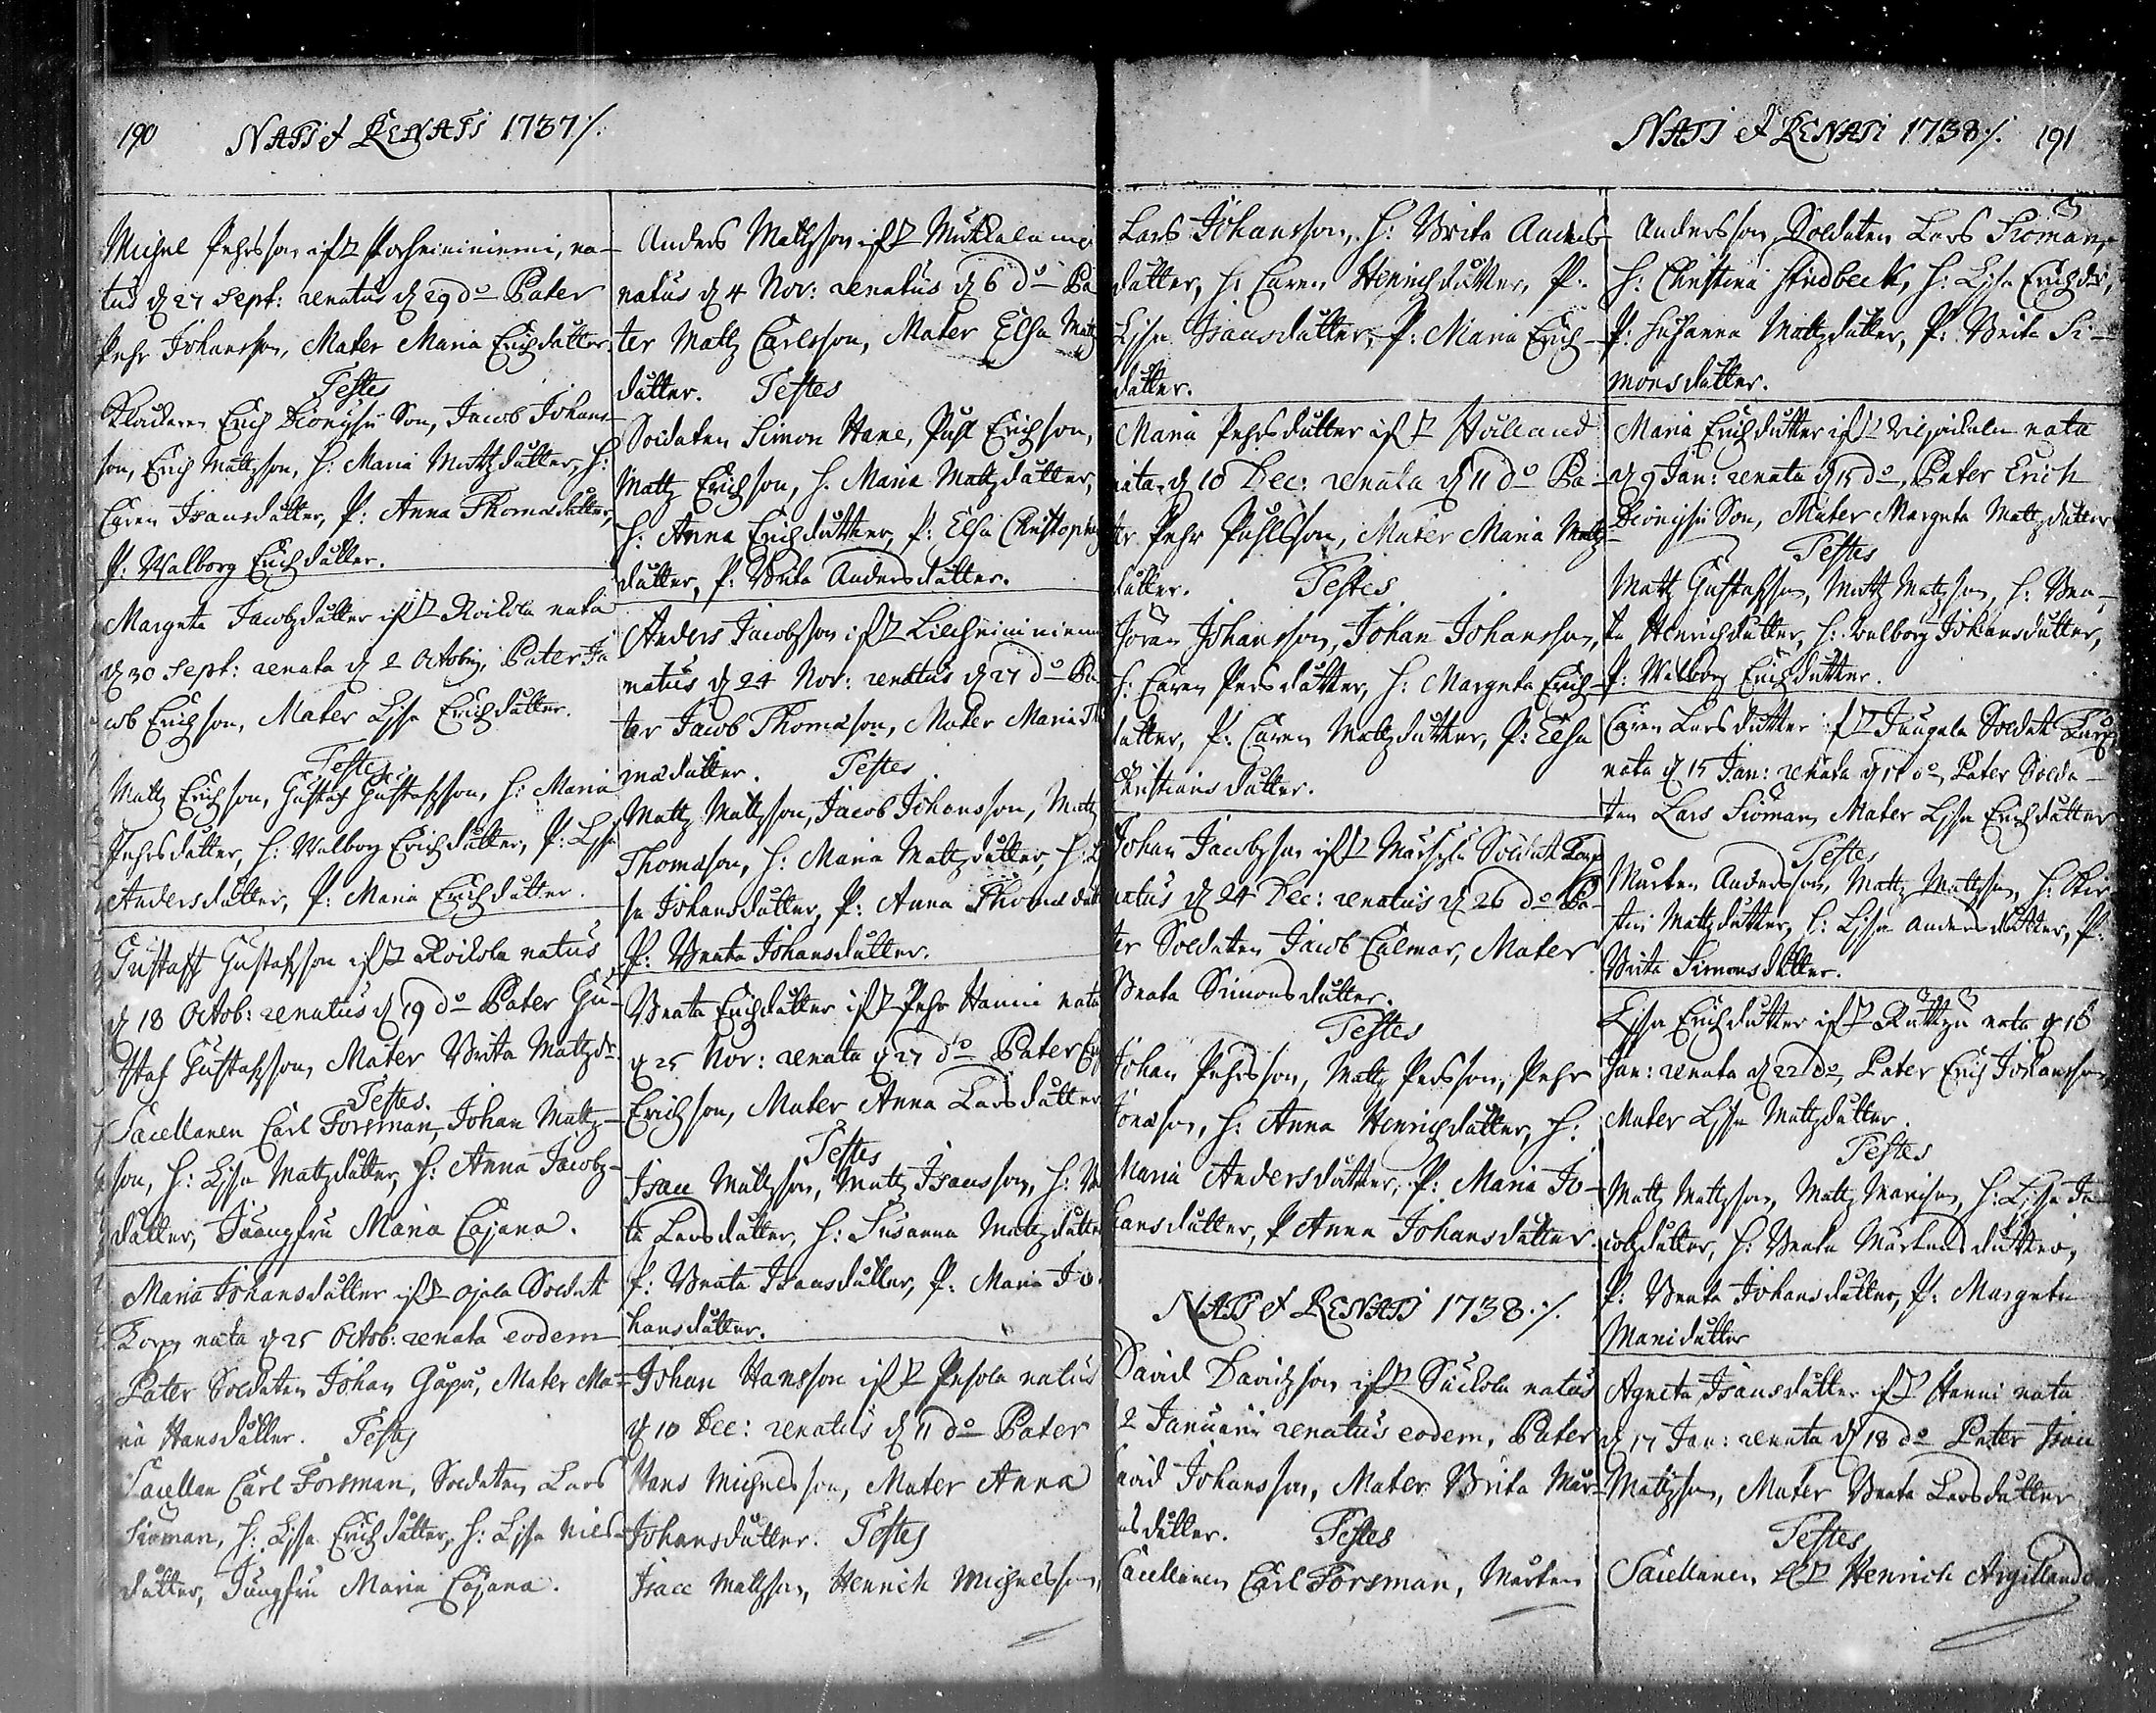 190 NATI et RENATI 1737 ./.
Michel Pehrsson ifr. Porheininiemi, na-
tus d. 27 Sept: renatus d. 29 do Pater
Pehr Johansson, Mater Maria Erichdåtter,
Testes
Erich Dionysii Son, Jacob Johans-
son, Erich Mattzson, H: Maria Mattzdåtter, H:
Caren Isansdåtter, P: Anna Thomasdåtter,
P: Walborg Erichdåtter.
Margeta Jacobzdåtter ifr. Roikola nata
d. 30 Sept: renata d. 2 Octobris, Pater Ja
cob Erichson, Mater Lisa Erichdåtter.
Testes
Mattz Erichson, Gustaf Gustafsson, H: Maria
Pehrsdåtter, H: Walborg Erichdåtter, P: Lisa
Andersdåtter, P: Maria Erichdåtter.
Gustaff Gustafsson ifr. Roikola natus
d. 18 Octob: renatus d. 19 do Pater Gu-
staf Gustafsson, Mater Brita Mattzdr
Testes.
Sacellanen Carl Forsman, Johan Mattz-
son, H: Lisa Mattzdåtter, H: Anna Jacobz-
dåtter, Jungfru Maria Cajana.
Maria Johansdåtter ifr. Ojala Soldat
Torp, nata d. 25 Octob: renata eodem
Pater Soldaten Johan Gåpå, Mater Ma-
ria Hansdåtter. Testes
Sacellan Carl Forsman, Soldaten Lars
Sioman, H: Lisa Erichdåtter, H: Lisa Nils-
dåtter, Jungfru Maria Cajana.
Anders Mattzson ifr. Mukkalamä
natus d. 4 Nov: renatus d. 6 do Pa
ter Mattz Carlsson, Mater Elsa Mattz
dåtter. Testes
Soldaten Simon Hane, Påhl Erichson,
Mattz Erichson, H. Maria Mattzdåtter,
H: Anna Erichdåtter, P: Elsa Christophers
dåtter, P: Brita Andersdåtter.
Anders Jacobsson ifr. Lilcheininiemi
natus d. 24 Nov: renatus d. 27 do Pa
ter Jacob Thomasson, Mater Maria Th
masdåtter. Testes
Mattz Mattzson, Jacob Johansson, Mattz
Thomasson, H: Maria Mattzdåtter, H: Li
sa Johansdåtter, P: Anna Thomasdått
P: Beata Johansdåtter.
Beata Erichdåtter ifr. Pehr Hanni nata
d. 25 Nov: renata d. 27 do Pater Erich
Erichson, Mater Anna Larsdåtter
Testes
Isac Mattzson, Mattz Isansson, H: Bea
ta Larsdåtter, H: Susanna Mattzdåtter
P: Beata Isansdåtter, P: Maria Jo-
hansdåtter.
Johan Hansson ifr. Pesola natus
d. 10 Dec: renatus d. 11 do Pater
Hans Michelsson, Mater Anna
Johansdåtter. Testes
Isac Mattzson, Henrich Michelsson,
NATI et RENATI 1738 ./. 191
Lars Johansson, H: Brita Anders
dåtter, H: Caren Henrichdåtter, P:
Lisa Isansdåtter, P: Maria Erich-
dåtter.
Maria Pehrsdåtter ifr. Hålland
nata d. 10 Dec: renata d. 11 do Pa-
ter Pehr Påhlsson, Mater Maria Mattz
dåtter. Testes
Jöran Johansson, Johan Johansson,
H: Caren Persdåtter, H: Margeta Erich-
dåtter, P: Caren Mattzdåtter, P: Elsa
Christiansdåtter.
Johan Jacobsson ifr. Soldat Torp
natus d. 24 Dec: renatus d. 26 do Pa-
ter Soldaten Jacob Calmar, Mater
Beata Simonsdåtter.
Testes
Johan Pehrsson, Mattz Persson, Pehr
Jonasson, H: Anna Henrichdåtter, H:
Maria Andersdåtter, P: Maria Jo-
hansdåtter, P Anna Johansdåtter.
NATI et RENATI 1738 ./.
David Davidsson ifr. Suckola natus
2 Januarii renatus eodem, Pater
David Johansson, Mater Brita Mår-
tensdåtter. Testes
Sacellanen Carl Forsman, Mårten
Andersson, Soldaten Lars Sioman,
H: Christina Hindbeck, H: Lisa Erichdr,
P: Susanna Mattzdåtter, P: Brita Si-
monsdåtter.
Maria Erichdåtter ifr. nata
d. 9 Jan: renata d. 15 do, Pater Erich
Dionysii Son, Mater Margeta Mattzdåtter
Testes
Mattz Gustafsson, Mattz Matzson, H: Bea-
ta Henrichdåtter, H: Walborg Johansdåtter,
P: Walborg Erichdåtter.
Caren Larsdåtter ifr. Jungala Soldat Torp
nata d. 15 Jan: renata d. 17 do, Pater Solda-
ten Lars Sioman, Mater Lisa Erichdåtter
Testes
Mårten Andersson, Mattz Mattzson, H: Kir-
stin Mattzdåtter, H: Lisa Andersdåtter, P:
Brita Simonsdåtter.
Lisa Erichdåtter ifr. nata d. 16
Jan: renata d. 22 do, Pater Erich Johansson,
Mater Lisa Mattzdåtter.
Testes
Mattz Mattzson, Mattz Marcson, H: Lisa Ja-
cobzdåtter, H: Beata Mårtensdåtter,
P: Beata Johansdåtter, P: Margeta
Marcidåtter
Agneta Isansdåtter ifr. Hanni nata
d. 17 Jan: renata d. 18 do Pater Isac
Mattzson, Mater Beata Larsdåtter
Testes
Sacellanen Hr Henrich Argillander